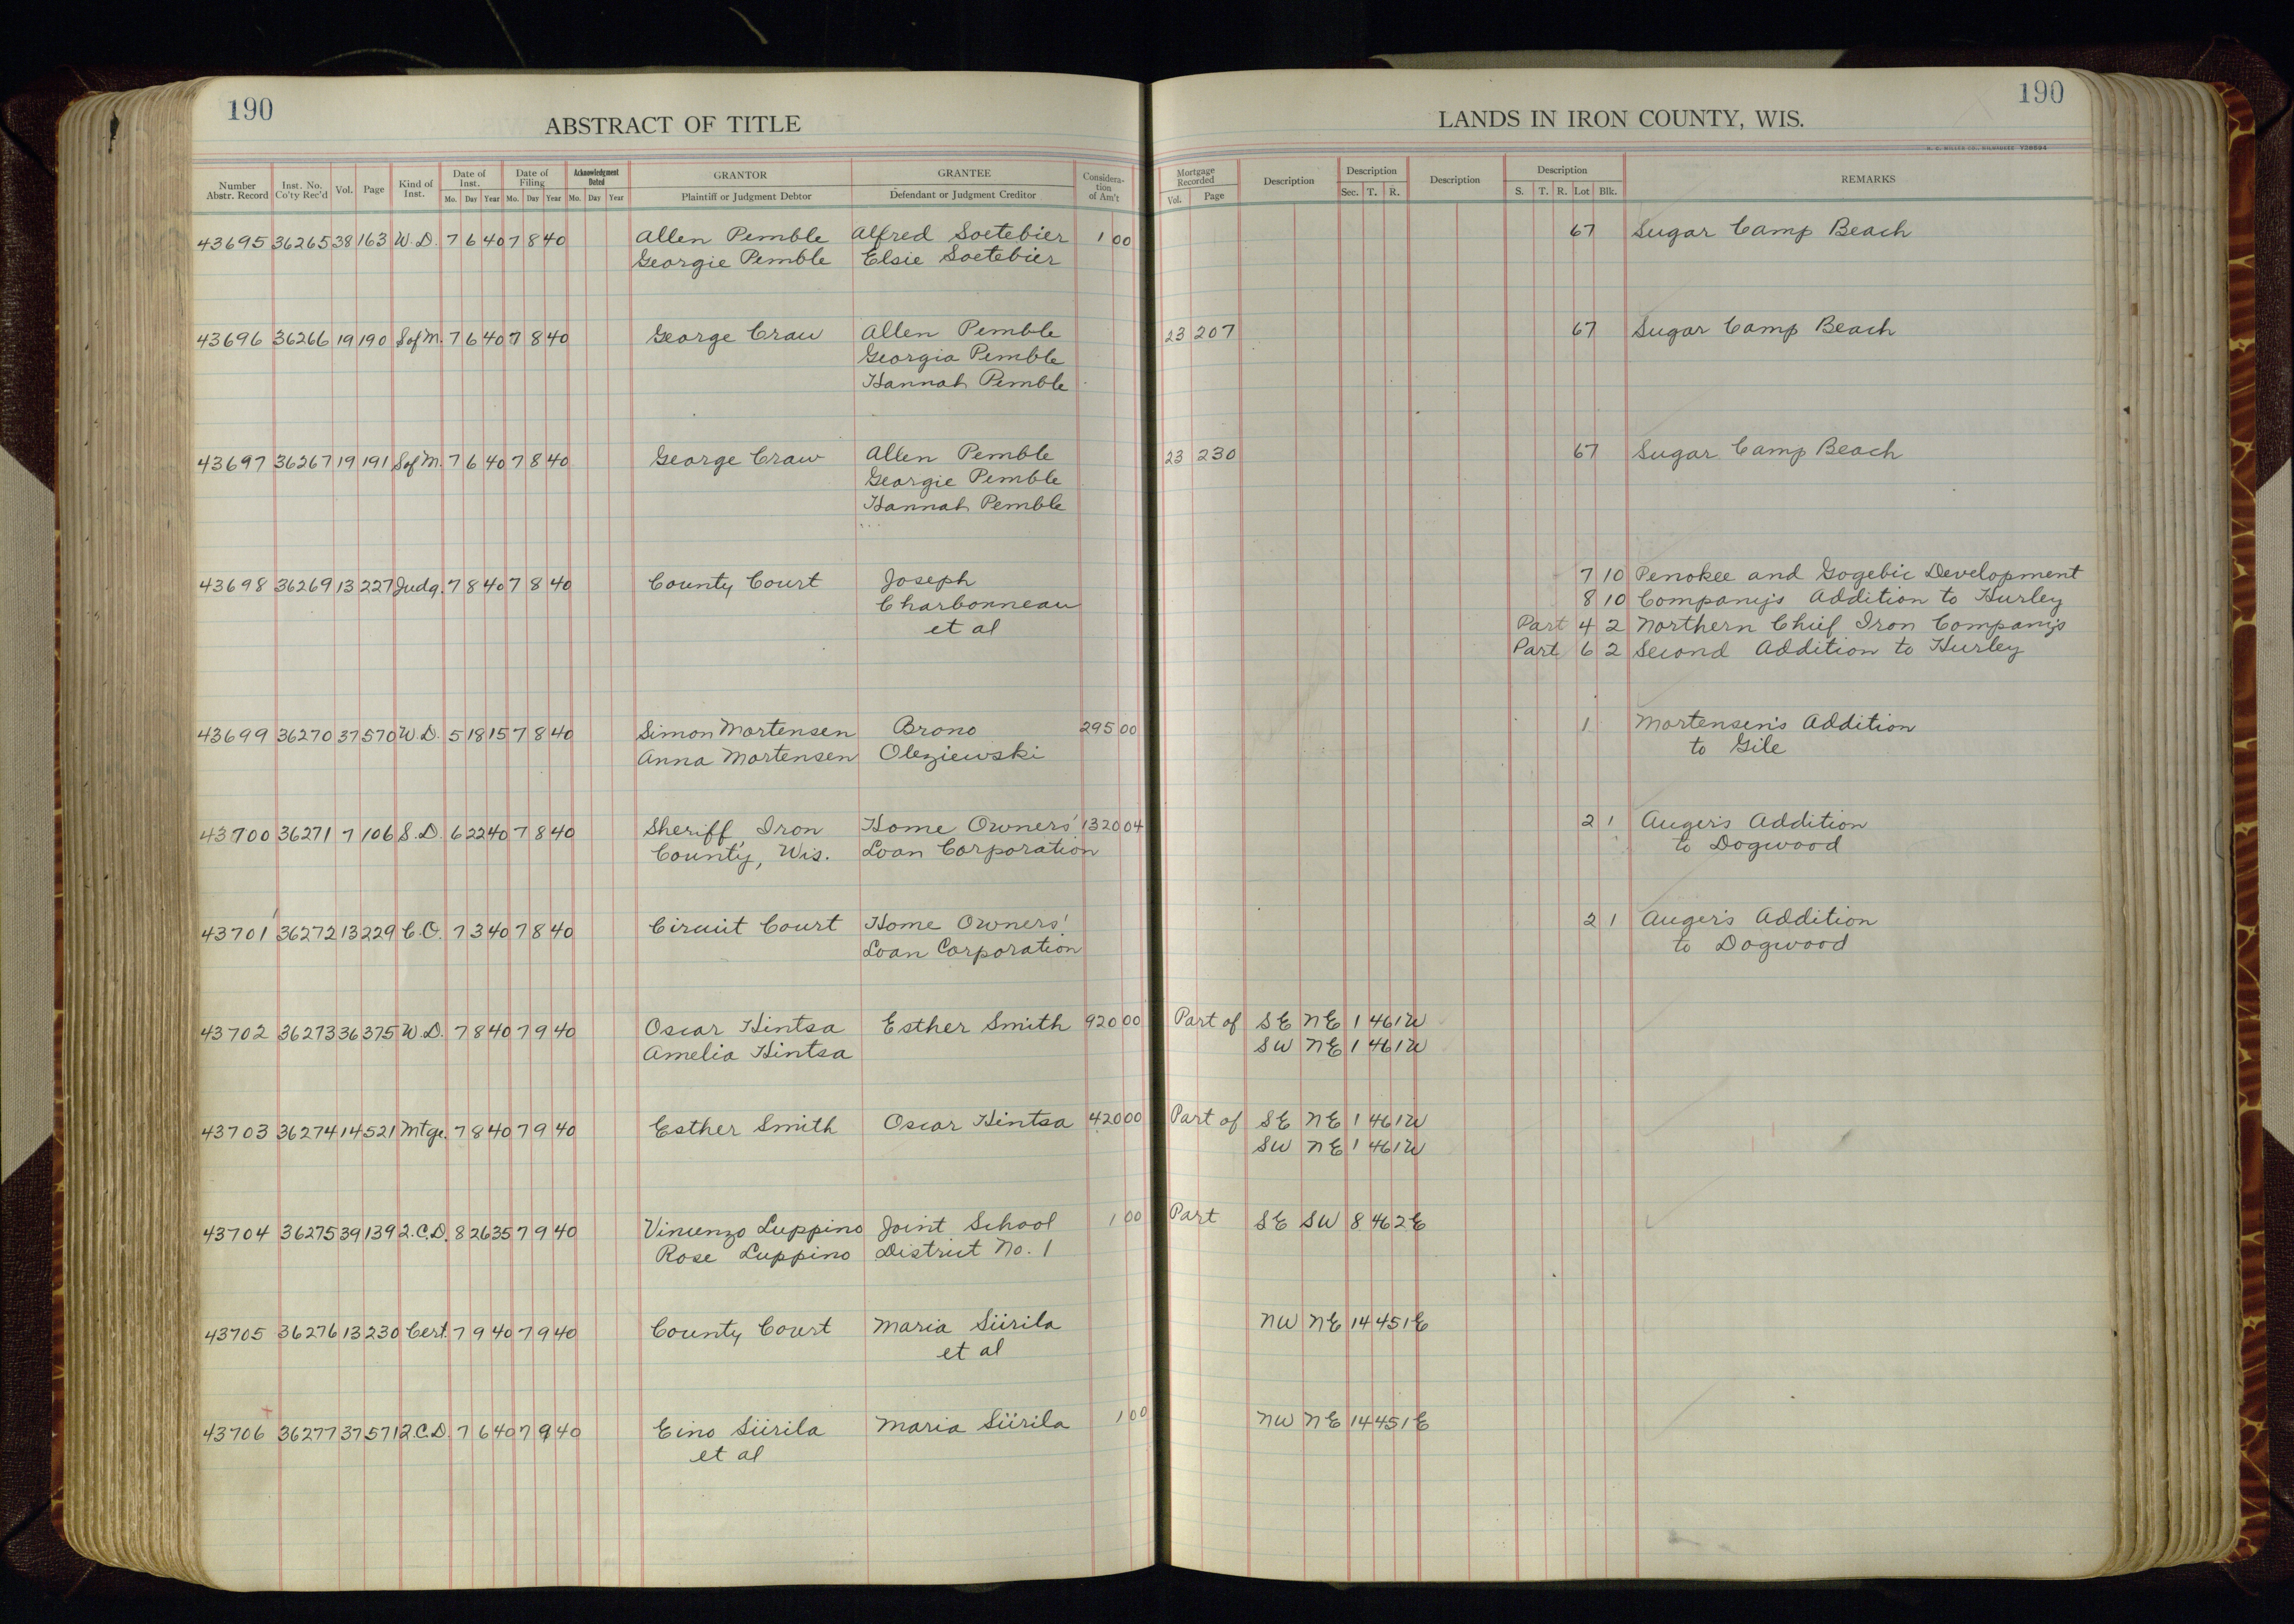 190
ABSTRACT OF TITLE
Number Abstr. Record | Inst. No. Co'ty Rec'd | Vol. | Page | Kind of Inst. | Date of Inst. Mo. Day Year | Date of Filing Mo. Day Year | Acknowledgment Dated Mo. Day Year | GRANTOR Plaintiff or Judgment Debtor | GRANTEE Defendant or Judgment Creditor | Consideration of Am't
43695 36265 38 163 W. D. 7 6 40 7 8 40 Allen Pemble Alfred Soetebier 1 00
Georgie Pemble Elsie Soetebier
43696 36266 19 190 S of M. 7 6 40 7 8 40 George Craw Allen Pemble
Georgia Pemble
Hannah Pemble
43697 36267 19 191 S of M. 7 6 40 7 8 40 George Craw Allen Pemble
Georgie Pemble
Hannah Pemble
43698 36269 13 227 Judg. 7 8 40 7 8 40 County Court Joseph
Charbonneau
et al
43699 36270 37 570 W. D. 5 18 15 7 8 40 Simon Mortensen Brono 295 00
Anna Mortensen Oleziewski
43700 36271 7 106 S. D. 6 22 40 7 8 40 Sheriff, Iron Home Owners' 1320 04
County, Wis. Loan Corporation
43701 36272 13 229 C. O. 7 3 40 7 8 40 Circuit Court Home Owners'
Loan Corporation
43702 36273 36 375 W. D. 7 8 40 7 9 40 Oscar Hintsa Esther Smith 920 00
Amelia Hintsa
43703 36274 14 521 Mtge. 7 8 40 7 9 40 Esther Smith Oscar Hintsa 420 00
43704 36275 39 139 2. C. D. 8 26 35 7 9 40 Vincenzo Luppino Joint School 1 00
Rose Luppino District No. 1
43705 36276 13 230 Cert. 7 9 40 7 9 40 County Court Maria Siirila
et al
43706 36277 37 571 2. C. D. 7 6 40 7 9 40 Eino Siirila Maria Siirila 1 00
et al
190
LANDS IN IRON COUNTY, WIS.
Mortgage Recorded Vol. Page | Description | Description Sec. T. R. | Description | Description S. T. R. Lot Blk. | REMARKS
67 Sugar Camp Beach
23 207 67 Sugar Camp Beach
23 230 67 Sugar Camp Beach
7 10 Penokee and Gogebic Development
8 10 Company's Addition to Hurley
Part 4 2 Northern Chief Iron Company's
Part 6 2 Second Addition to Hurley
1 Mortensen's Addition
to Gile
2 1 Auger's Addition
to Dogwood
2 1 Auger's Addition
to Dogwood
Part of SE NE 1 46 1W
SW NE 1 46 1W
Part of SE NE 1 46 1W
SW NE 1 46 1W
Part SE SW 8 46 2E
NW NE 14 45 1E
NW NE 14 45 1E